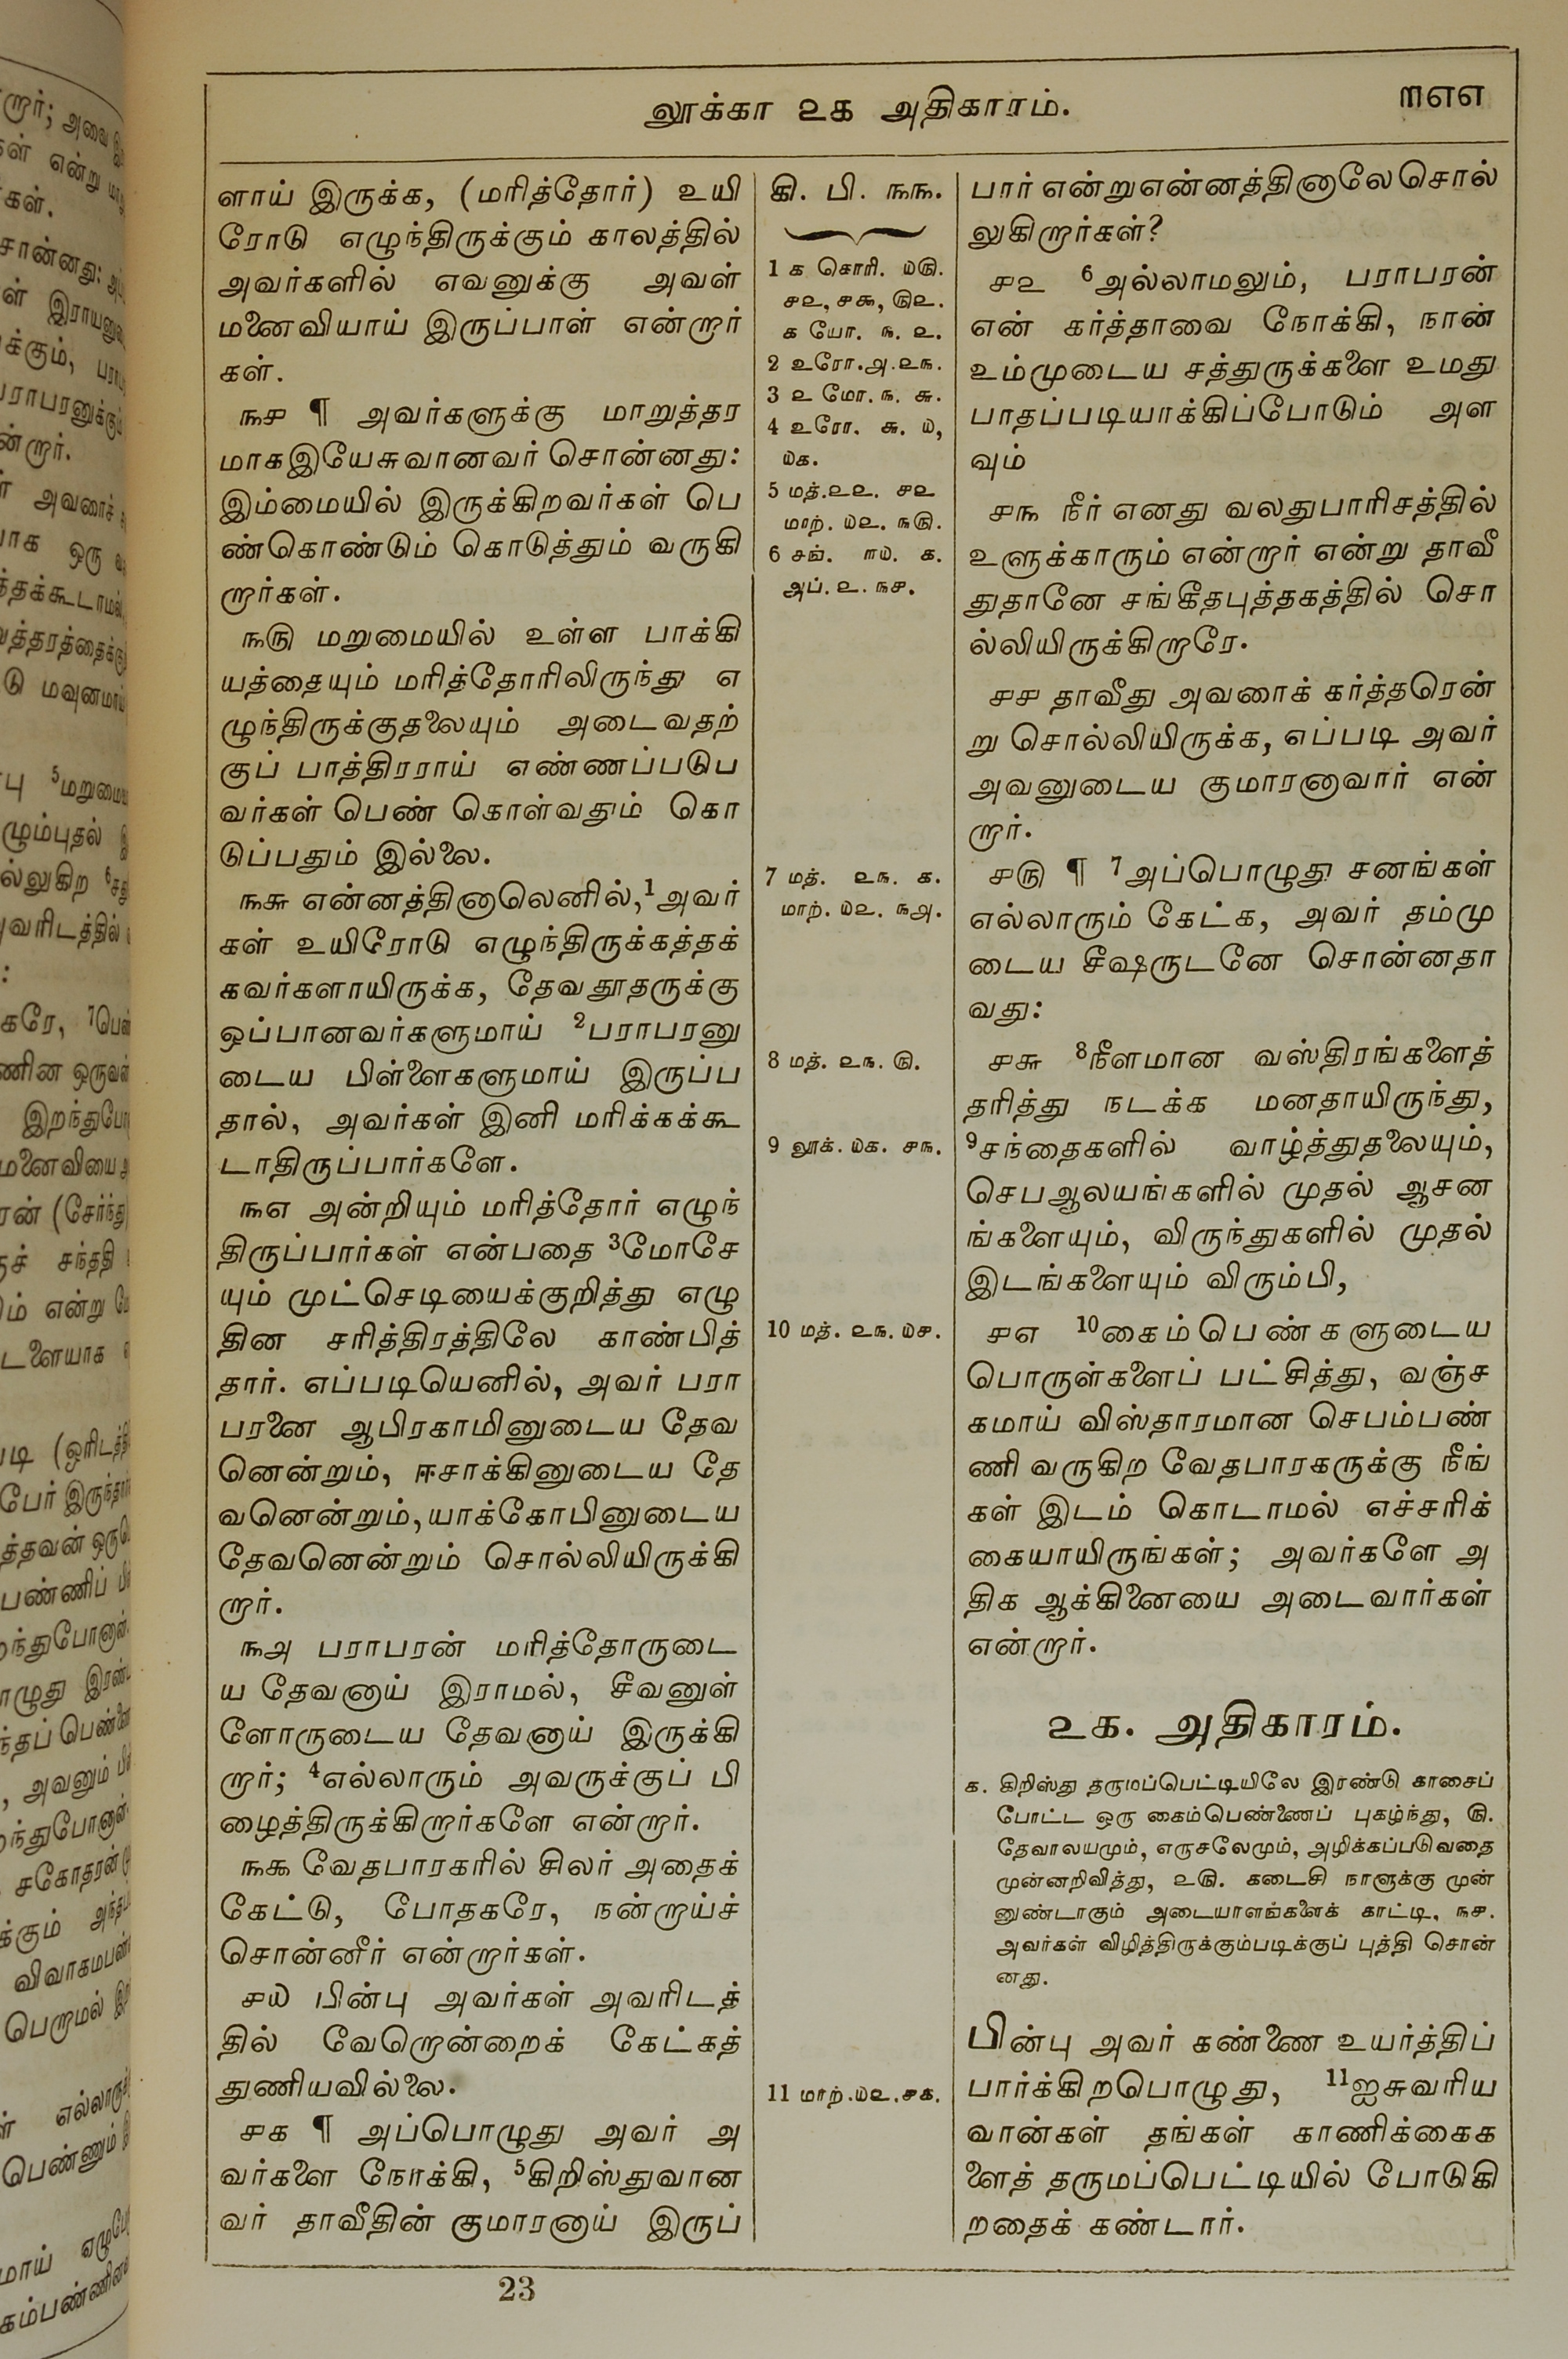 லூக்கா ௨௧ அதிகாரம்.
௩௭௭
ளாய் இருக்க, (மரித்தோர்) உயி
ரோடு எழுந்திருக்கும் காலத்தில்
அவர்களில் எவனுக்கு அவள்
மனைவியாய் இருப்பாள் என்றார்
கள்.
௩௪ ¶ அவர்களுக்கு மாறுத்தர
மாகஇயேசுவானவர் சொன்னது:
இம்மையில் இருக்கிறவர்கள் பெ
ண்கொண்டும் கொடுத்தும் வருகி
றார்கள்.
௩௫ மறுமையில் உள்ள பாக்கி
யத்தையும் மரித்தோரிலிருந்து எ
ழுந்திருக்குதலையும் அடைவதற்
குப் பாத்திரராய் எண்ணப்படுப
வர்கள் பெண் கொள்வதும் கொ
டுப்பதும் இல்லை.
௩௬ என்னத்தினாலெனில்,1அவர்
கள் உயிரோடு எழுந்திருக்கத்தக்
கவர்களாயிருக்க, தேவதூதருக்கு
ஒப்பானவர்களுமாய் 2பராபரனு
டைய பிள்ளைகளுமாய் இருப்ப
தால், அவர்கள் இனி மரிக்கக்கூ
டாதிருப்பார்களே.
௩௭ அன்றியும் மரித்தோர் எழுந்
திருப்பார்கள் என்பதை 3மோசே
யும் முட்செடியைக்குறித்து எழு
தின சரித்திரத்திலே காண்பித்
தார். எப்படியெனில், அவர் பரா
பரனை ஆபிரகாமினுடைய தேவ
னென்றும், ஈசாக்கினுடைய தே
வனென்றும்,யாக்கோபினுடைய
தேவனென்றும் சொல்லியிருக்கி
றார்.
௩௮ பராபரன் மரித்தோருடை
ய தேவனாய் இராமல், சீவனுள்
ளோருடைய தேவனாய் இருக்கி
றார்; 4எல்லாரும் அவருக்குப் பி
ழைத்திருக்கிறார்களே என்றார்.
௩௯ வேதபாரகரில் சிலர் அதைக்
கேட்டு, போதகரே, நன்றாய்ச்
சொன்னீர் என்றார்கள்.
௪௰ பின்பு அவர்கள் அவரிடத்
தில் வேறொன்றைக் கேட்கத்
துணியவில்லை.
௪௧ ¶ அப்பொழுது அவர் அ
வர்களை நோக்கி, 5கிறிஸ்துவான
வர் தாவீதின் குமாரனாய் இருப்
கி. பி. ௩௩.
1 ௧ கொரி. ௰௫.
௪௨, ௪௯, ௫௨.
௧ யோ. ௩. ௨.
2 உரோ.௮.௨௩.
3 ௨ மோ. ௩. ௬.
4 உரோ. ௬. ௰,
௰௧.
5 மத்.௨௨. ௪௨
மாற். ௰௨. ௩௫.
6 சங். ௱௰. ௧.
அப். ௨. ௩௪.
7 மத். ௨௩. ௧.
மாற். ௰௨. ௩௮.
8 மத். ௨௩. ௫.
9 லூக். ௰௧. ௪௩.
10 மத். ௨௩. ௰௪.
11 மாற்.௰௨.௪௧.
பார் என்றுஎன்னத்தினாலேசொல்
லுகிறார்கள்?
௪௨ 6அல்லாமலும், பராபரன்
என் கர்த்தாவை நோக்கி, நான்
உம்முடைய சத்துருக்களை உமது
பாதப்படியாக்கிப்போடும் அள
வும்
௪௩ நீர் எனது வலதுபாரிசத்தில்
உளுக்காரும் என்றார் என்று தாவீ
துதானே சங்கீதபுத்தகத்தில் சொ
ல்லியிருக்கிறாரே.
௪௪ தாவீது அவரைக் கர்த்தரென்
று சொல்லியிருக்க, எப்படி அவர்
அவனுடைய குமாரனாவார் என்
றார்.
௪௫ ¶ 7அப்பொழுது சனங்கள்
எல்லாரும் கேட்க, அவர் தம்மு
டைய சீஷருடனே சொன்னதா
வது:
௪௬ 8நீளமான வஸ்திரங்களைத்
தரித்து நடக்க மனதாயிருந்து,
9சந்தைகளில் வாழ்த்துதலையும்,
செபஆலயங்களில் முதல் ஆசன
ங்களையும், விருந்துகளில் முதல்
இடங்களையும் விரும்பி,
௪௭ 10கைம்பெண்களுடைய
பொருள்களைப் பட்சித்து, வஞ்ச
கமாய் விஸ்தாரமான செபம்பண்
ணி வருகிற வேதபாரகருக்கு நீங்
கள் இடம் கொடாமல் எச்சரிக்
கையாயிருங்கள்; அவர்களே அ
திக ஆக்கினையை அடைவார்கள்
என்றார்.
௨௧. அதிகாரம்.
௧. கிறிஸ்து தருமப்பெட்டியிலே இரண்டு காசைப்
போட்ட ஒரு கைம்பெண்ணைப் புகழ்ந்து, ௫.
தேவாலயமும், எருசலேமும், அழிக்கப்படுவதை
முன்னறிவித்து, ௨௫. கடைசி நாளுக்கு முன்
னுண்டாகும் அடையாளங்களைக் காட்டி, ௩௪.
அவர்கள் விழித்திருக்கும்படிக்குப் புத்தி சொன்
னது.
பின்பு அவர் கண்ணை உயர்த்திப்
பார்க்கிறபொழுது, 11ஐசுவரிய
வான்கள் தங்கள் காணிக்கைக
ளைத் தருமப்பெட்டியில் போடுகி
றதைக் கண்டார்.
23